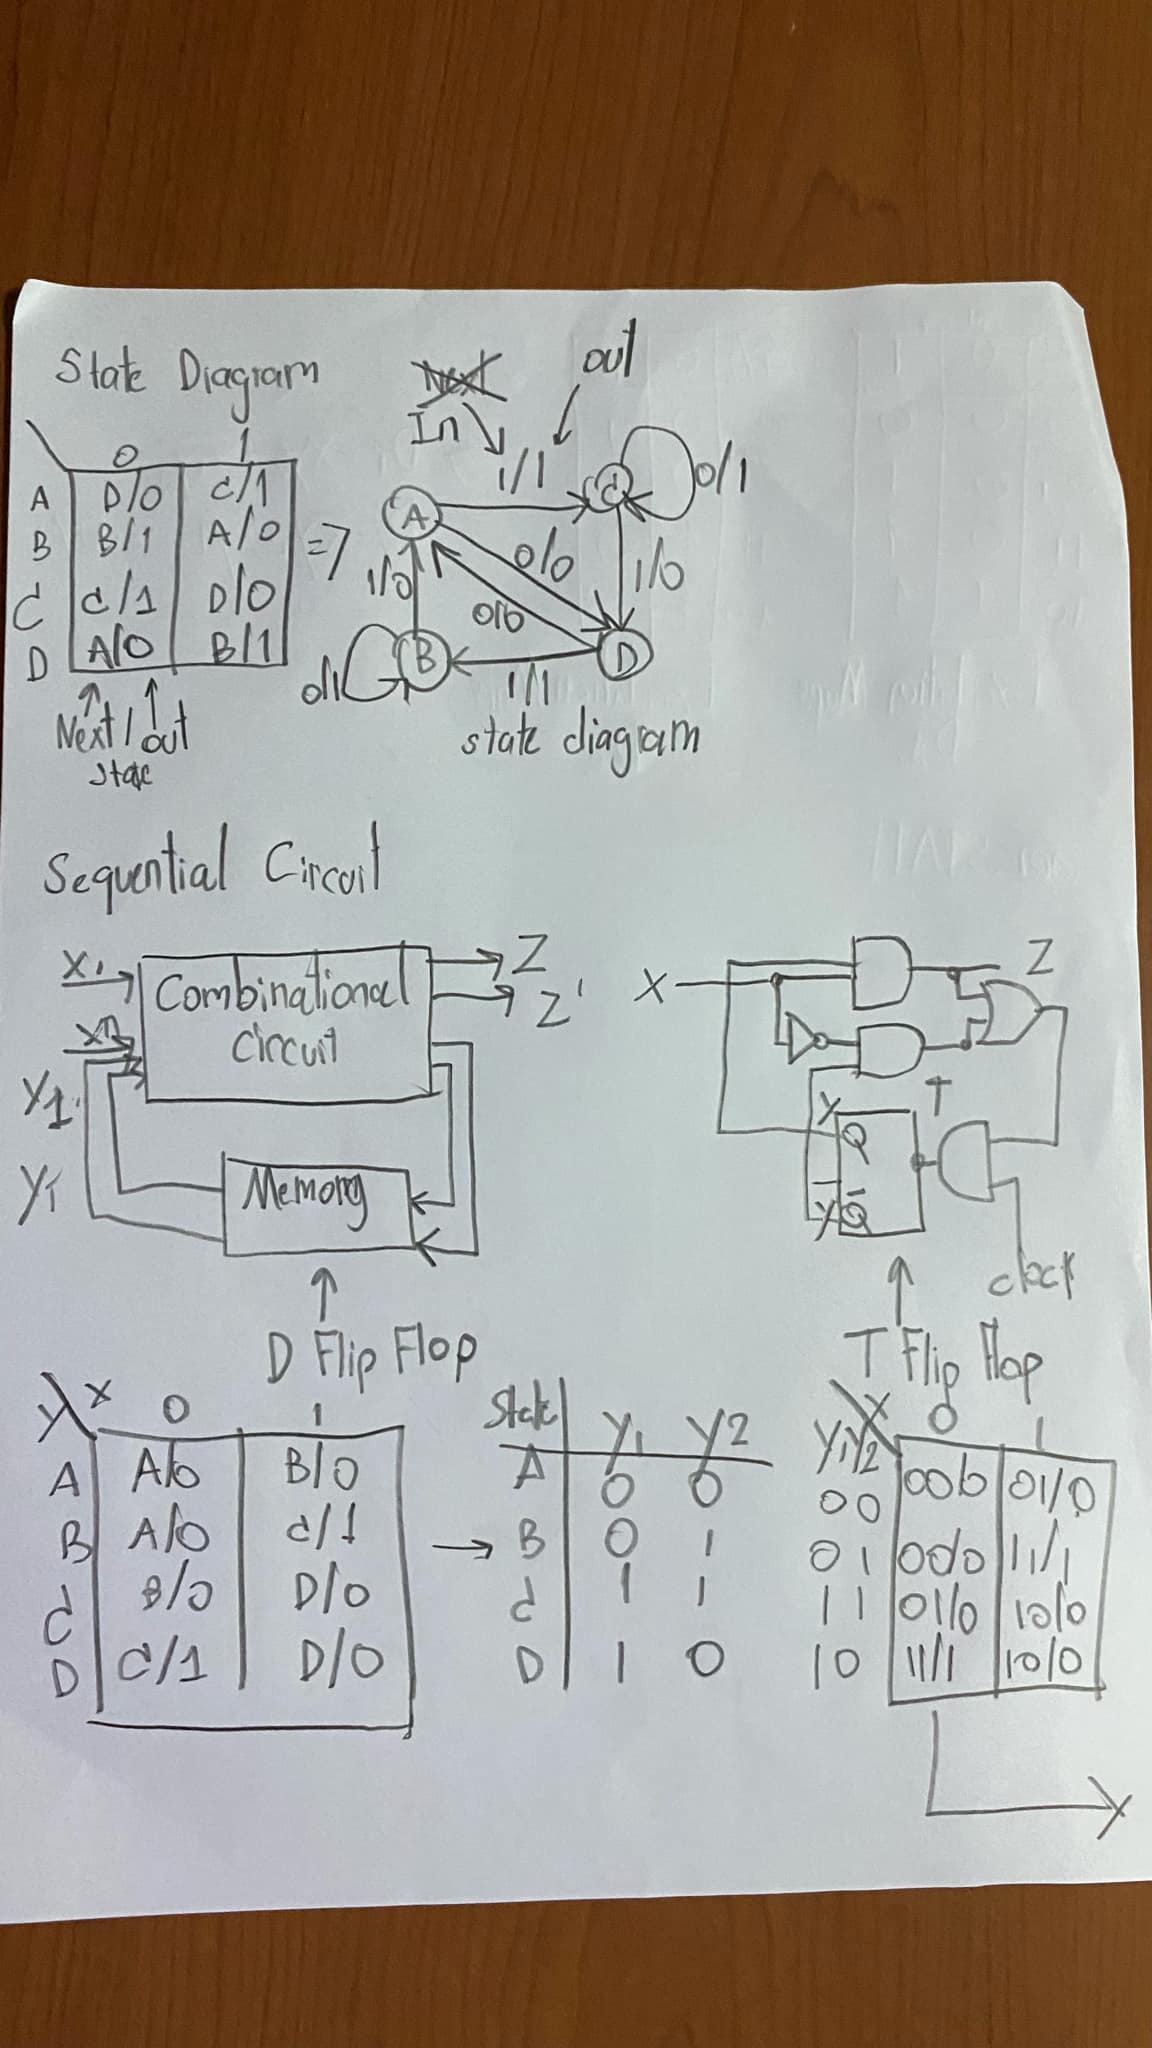 State Diagram
In
out
0 1
A D/0 C/1
B B/1 A/0
C C/1 D/0
D A/0 B/1
=>
Next / out
state
1/1
A
C
0/1
0/0
1/0
1/0
0/0
0/1
B
D
1/1
state diagram
Sequential Circuit
X1
Combinational
circuit
Z
Z'
Y1
Y1
Memory
D Flip Flop
X
Z
T
y Q
y̅ Q̅
clock
T Flip Flop
y x 0 1
A A/0 B/0
B A/0 C/1
C B/0 D/0
D C/1 D/0
State Y1 Y2
A 0 0
B 0 1
C 1 1
D 1 0
Y1Y2 X 0 1
00 00/0 01/0
01 00/0 11/1
11 01/0 10/0
10 11/1 10/0